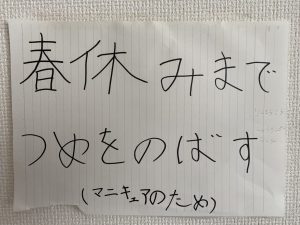 春休みまで
つめをのばす
(マニキュアのため)